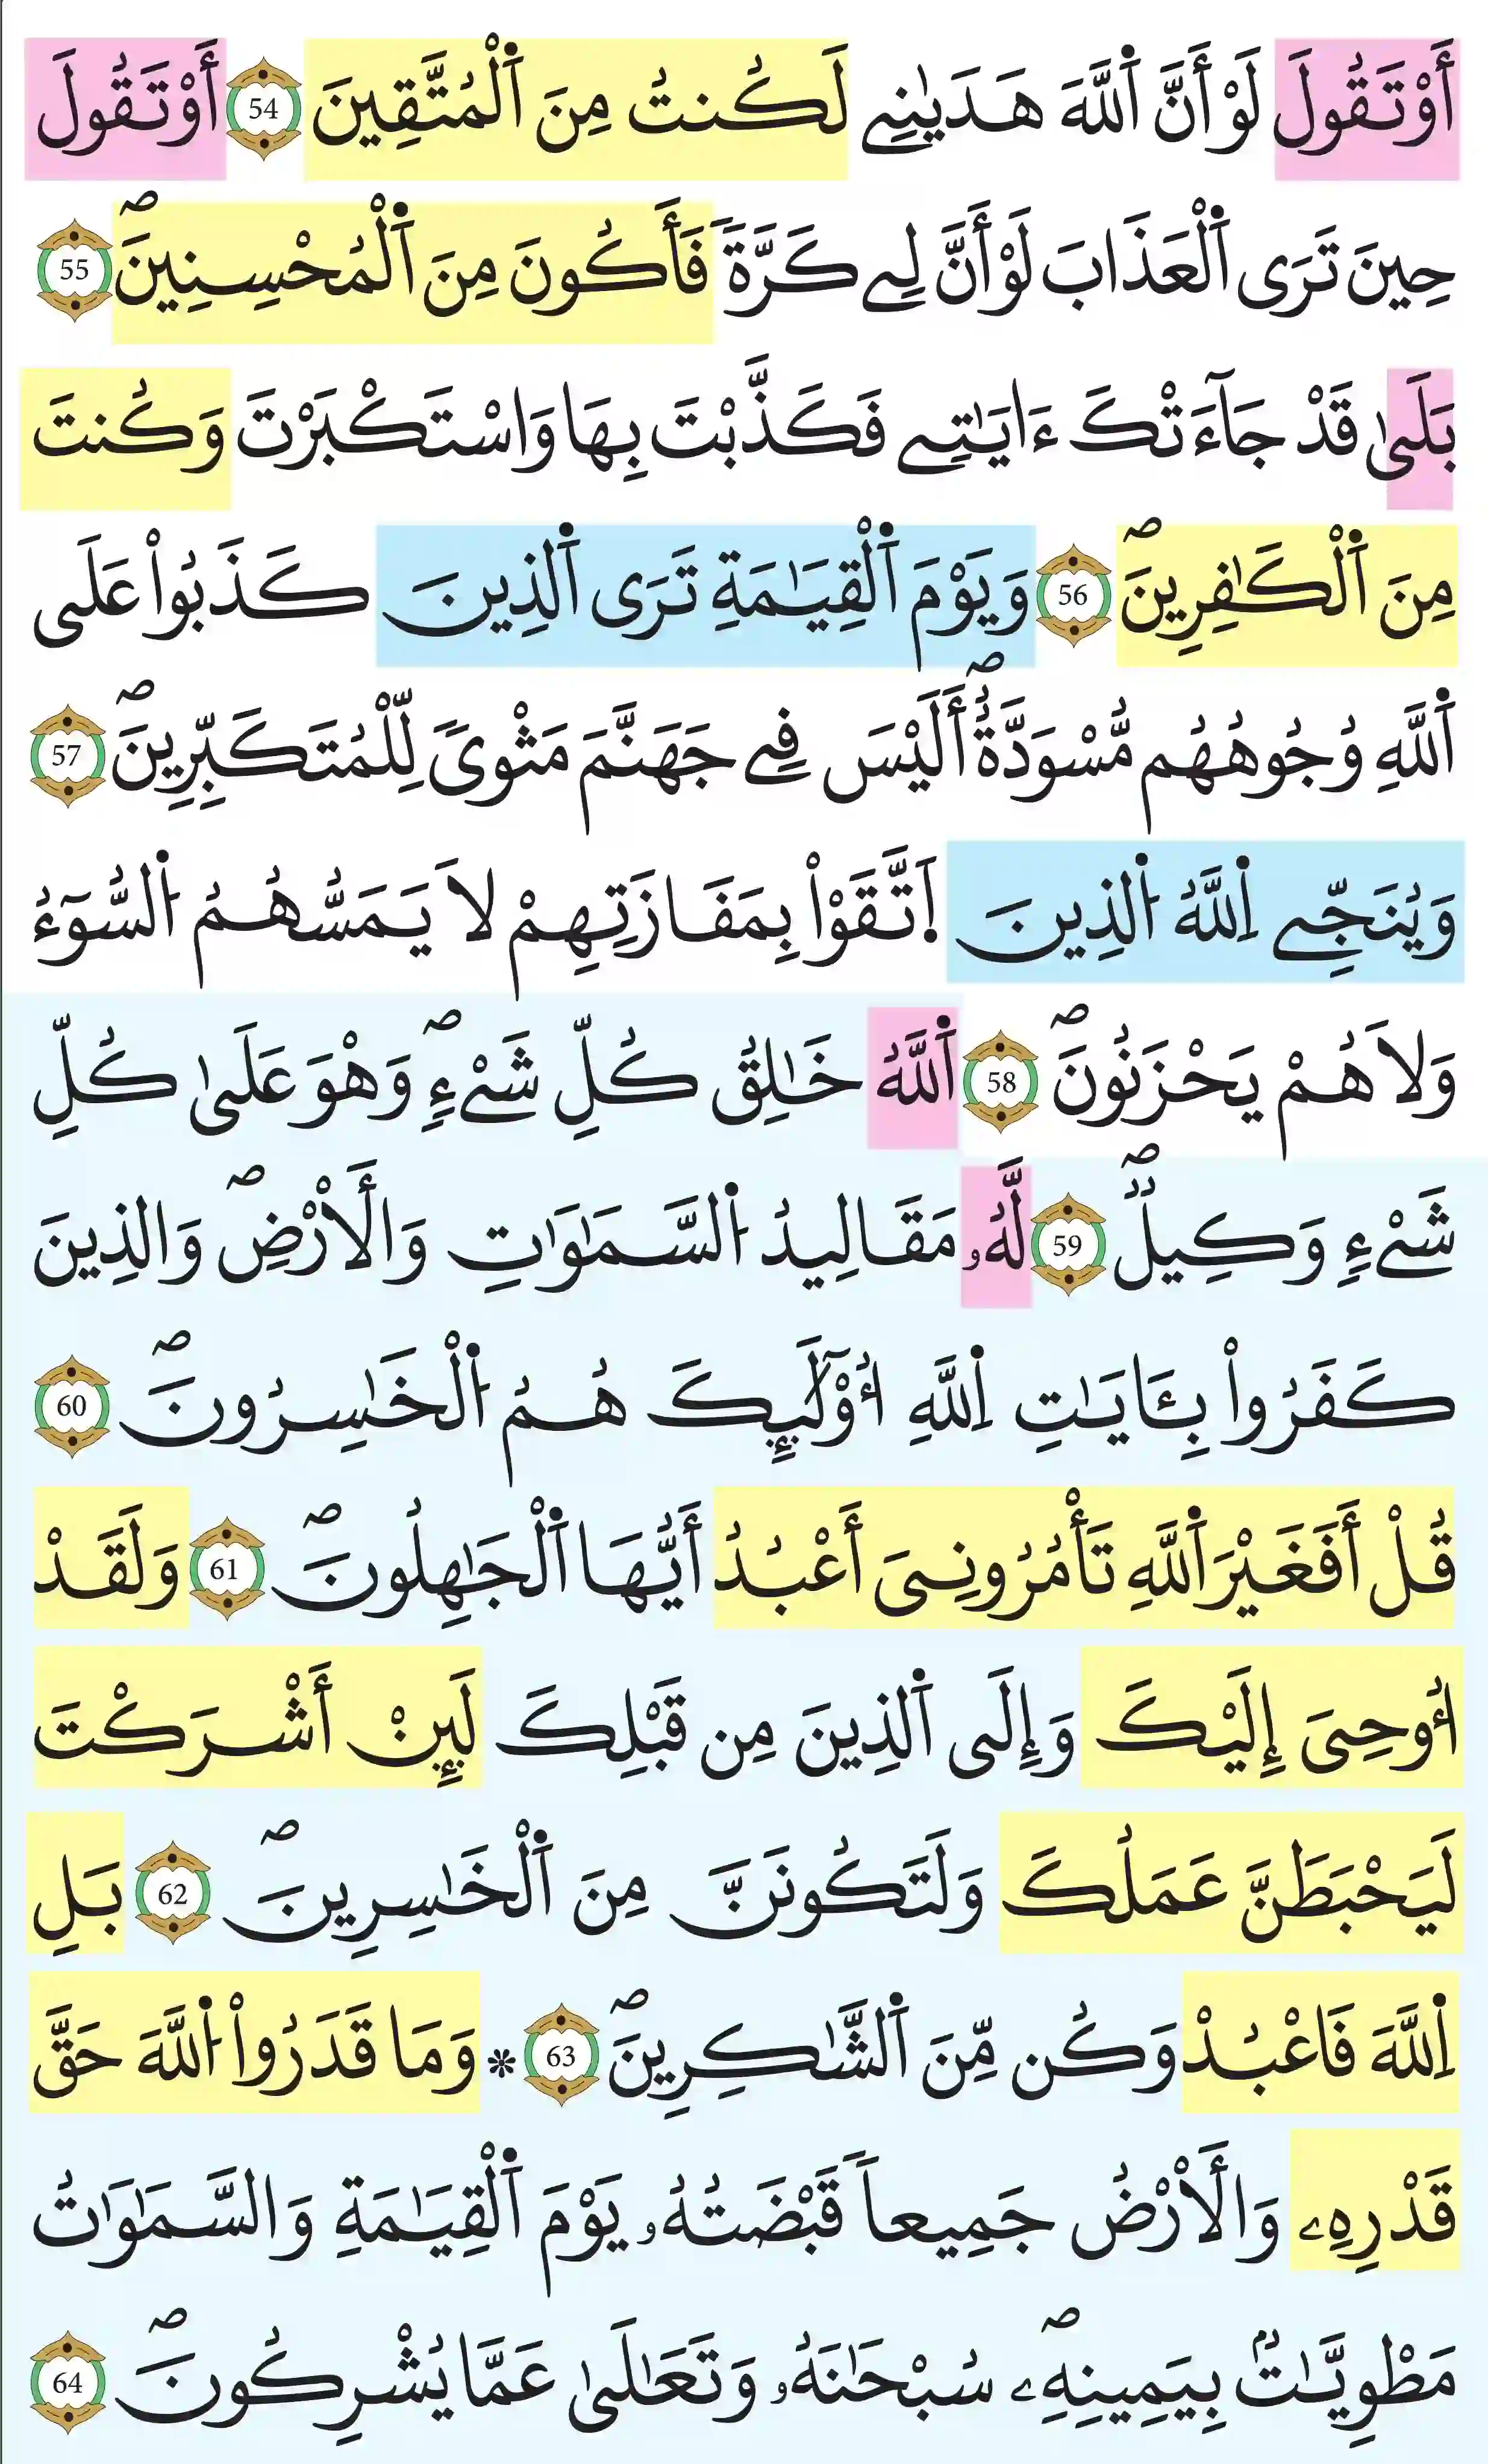 أَوْ تَقُولَ لَوْ أَنَّ اَ۬للَّهَ هَد۪يٰنِے لَكُنتُ مِنَ اَ۬لْمُتَّقِينَ 54 أَوْ تَقُولَ
حِينَ تَرَى اَ۬لْعَذَابَ لَوْ أَنَّ لِے كَرَّةٗ فَأَكُونَ مِنَ اَ۬لْمُحْسِنِينَۖ 55
بَلَىٰ قَدْ جَآءَتْكَ ءَايَٰتِے فَكَذَّبْتَ بِهَا وَاسْتَكْبَرْتَ وَكُنتَ
مِنَ اَ۬لْكَٰفِرِينَۖ 56 وَيَوْمَ اَ۬لْقِيَٰمَةِ تَرَى اَ۬لذِينَ كَذَبُواْ عَلَى
اَ۬للَّهِ وُجُوهُهُم مُّسْوَدَّةٌۖ أَلَيْسَ فِے جَهَنَّمَ مَثْوىٗ لِّلْمُتَكَبِّرِينَۖ 57
وَيُنَجِّے اِ۬للَّهُ اُ۬لذِينَ اَ۪تَّقَوْاْ بِمَفَازَتِهِمْ لَا يَمَسُّهُمُ اُ۬لسُّوٓءُ
وَلَا هُمْ يَحْزَنُونَۖ 58 اَ۬للَّهُ خَٰلِقُ كُلِّ شَےْءٖۖ وَهْوَ عَلَىٰ كُلِّ
شَےْءٖ وَكِيلٞۖ 59 لَّهُۥ مَقَالِيدُ اُ۬لسَّمَٰوَٰتِ وَالْأَرْضِۖ وَالذِينَ
كَفَرُواْ بِـَٔايَٰتِ اِ۬للَّهِ أُوْلَٰٓئِكَ هُمُ اُ۬لْخَٰسِرُونَۖ 60
قُلْ أَفَغَيْرَ اَ۬للَّهِ تَأْمُرُونِيَ أَعْبُدُ أَيُّهَا اَ۬لْجَٰهِلُونَۖ 61 وَلَقَدْ
أُوحِيَ إِلَيْكَ وَإِلَى اَ۬لذِينَ مِن قَبْلِكَ لَئِنْ أَشْرَكْتَ
لَيَحْبَطَنَّ عَمَلُكَ وَلَتَكُونَنَّ مِنَ اَ۬لْخَٰسِرِينَۖ 62 بَلِ
اِ۬للَّهَ فَاعْبُدْ وَكُن مِّنَ اَ۬لشَّٰكِرِينَۖ 63 ۞ وَمَا قَدَرُواْ اُ۬للَّهَ حَقَّ
قَدْرِهِۦ وَالْأَرْضُ جَمِيعاٗ قَبْضَتُهُۥ يَوْمَ اَ۬لْقِيَٰمَةِ وَالسَّمَٰوَٰتُ
مَطْوِيَّٰتُۢ بِيَمِينِهِۦۖ سُبْحَٰنَهُۥ وَتَعَٰلَىٰ عَمَّا يُشْرِكُونَۖ 64